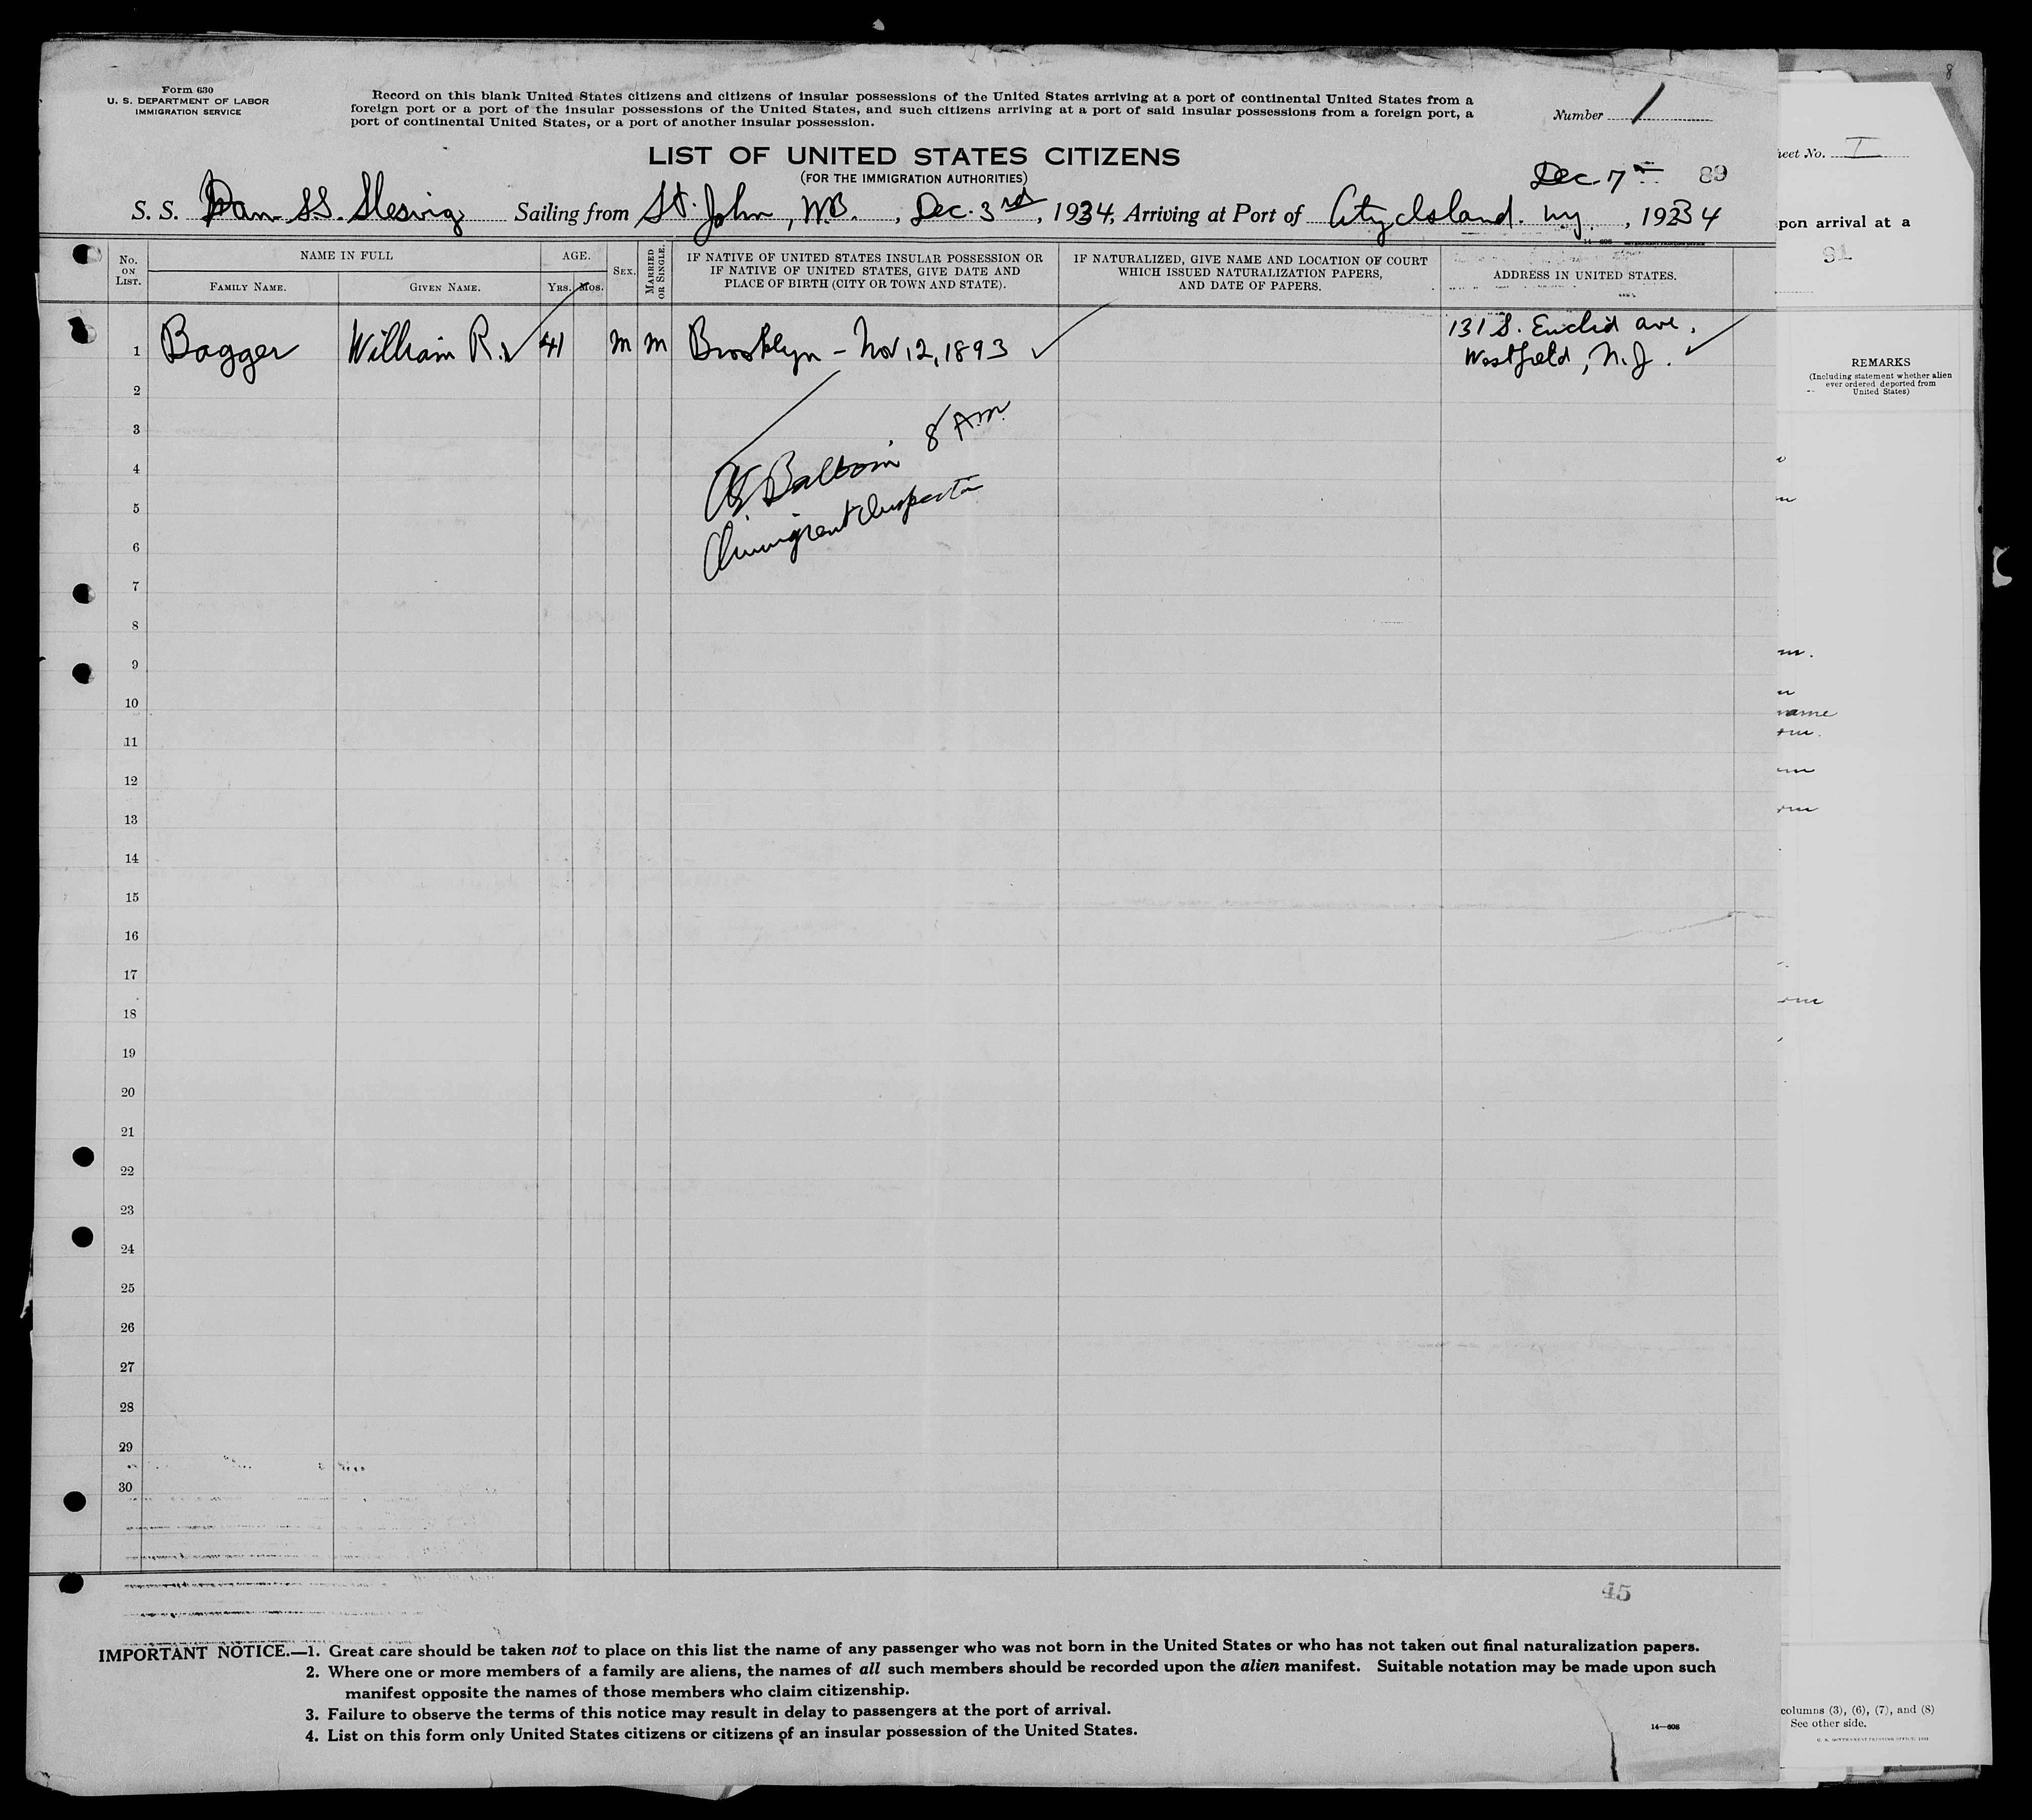 8
Form 630
U. S. DEPARTMENT OF LABOR
IMMIGRATION SERVICE
Record on this blank United States citizens and citizens of insular possessions of the United States arriving at a port of continental United States from a
foreign port or a port of the insular possessions of the United States, and such citizens arriving at a port of said insular possessions from a foreign port, a
port of continental United States, or a port of another insular possession.
Number 1
LIST OF UNITED STATES CITIZENS
(FOR THE IMMIGRATION AUTHORITIES)
Dec. 7 89
S. S. Dan. SS. Slesvig Sailing from St. John, NB., Dec. 3rd, 1934, Arriving at Port of City Island. Ny., 1934
No. ON LIST.
NAME IN FULL
FAMILY NAME. GIVEN NAME.
AGE.
YRS. MOS.
SEX.
MARRIED OR SINGLE.
IF NATIVE OF UNITED STATES INSULAR POSSESSION OR
IF NATIVE OF UNITED STATES, GIVE DATE AND
PLACE OF BIRTH (CITY OR TOWN AND STATE).
IF NATURALIZED, GIVE NAME AND LOCATION OF COURT
WHICH ISSUED NATURALIZATION PAPERS,
AND DATE OF PAPERS.
ADDRESS IN UNITED STATES.
1 Bagger William R. 41 m m Brooklyn - Nov 12, 1893 131 S. Euclid ave,
Westfield, N. J.
2
3
8 AM
4
5
Immigrant Inspector
6
7
8
9
10
11
12
13
14
15
16
17
18
19
20
21
22
23
24
25
26
27
28
29
30
45
IMPORTANT NOTICE.—1. Great care should be taken not to place on this list the name of any passenger who was not born in the United States or who has not taken out final naturalization papers.
2. Where one or more members of a family are aliens, the names of all such members should be recorded upon the alien manifest. Suitable notation may be made upon such
manifest opposite the names of those members who claim citizenship.
3. Failure to observe the terms of this notice may result in delay to passengers at the port of arrival.
4. List on this form only United States citizens or citizens of an insular possession of the United States.
14—608
heet No. I
pon arrival at a
91
REMARKS
(Including statement whether alien
ever ordered deported from
United States)
name
columns (3), (6), (7), and (8)
See other side.